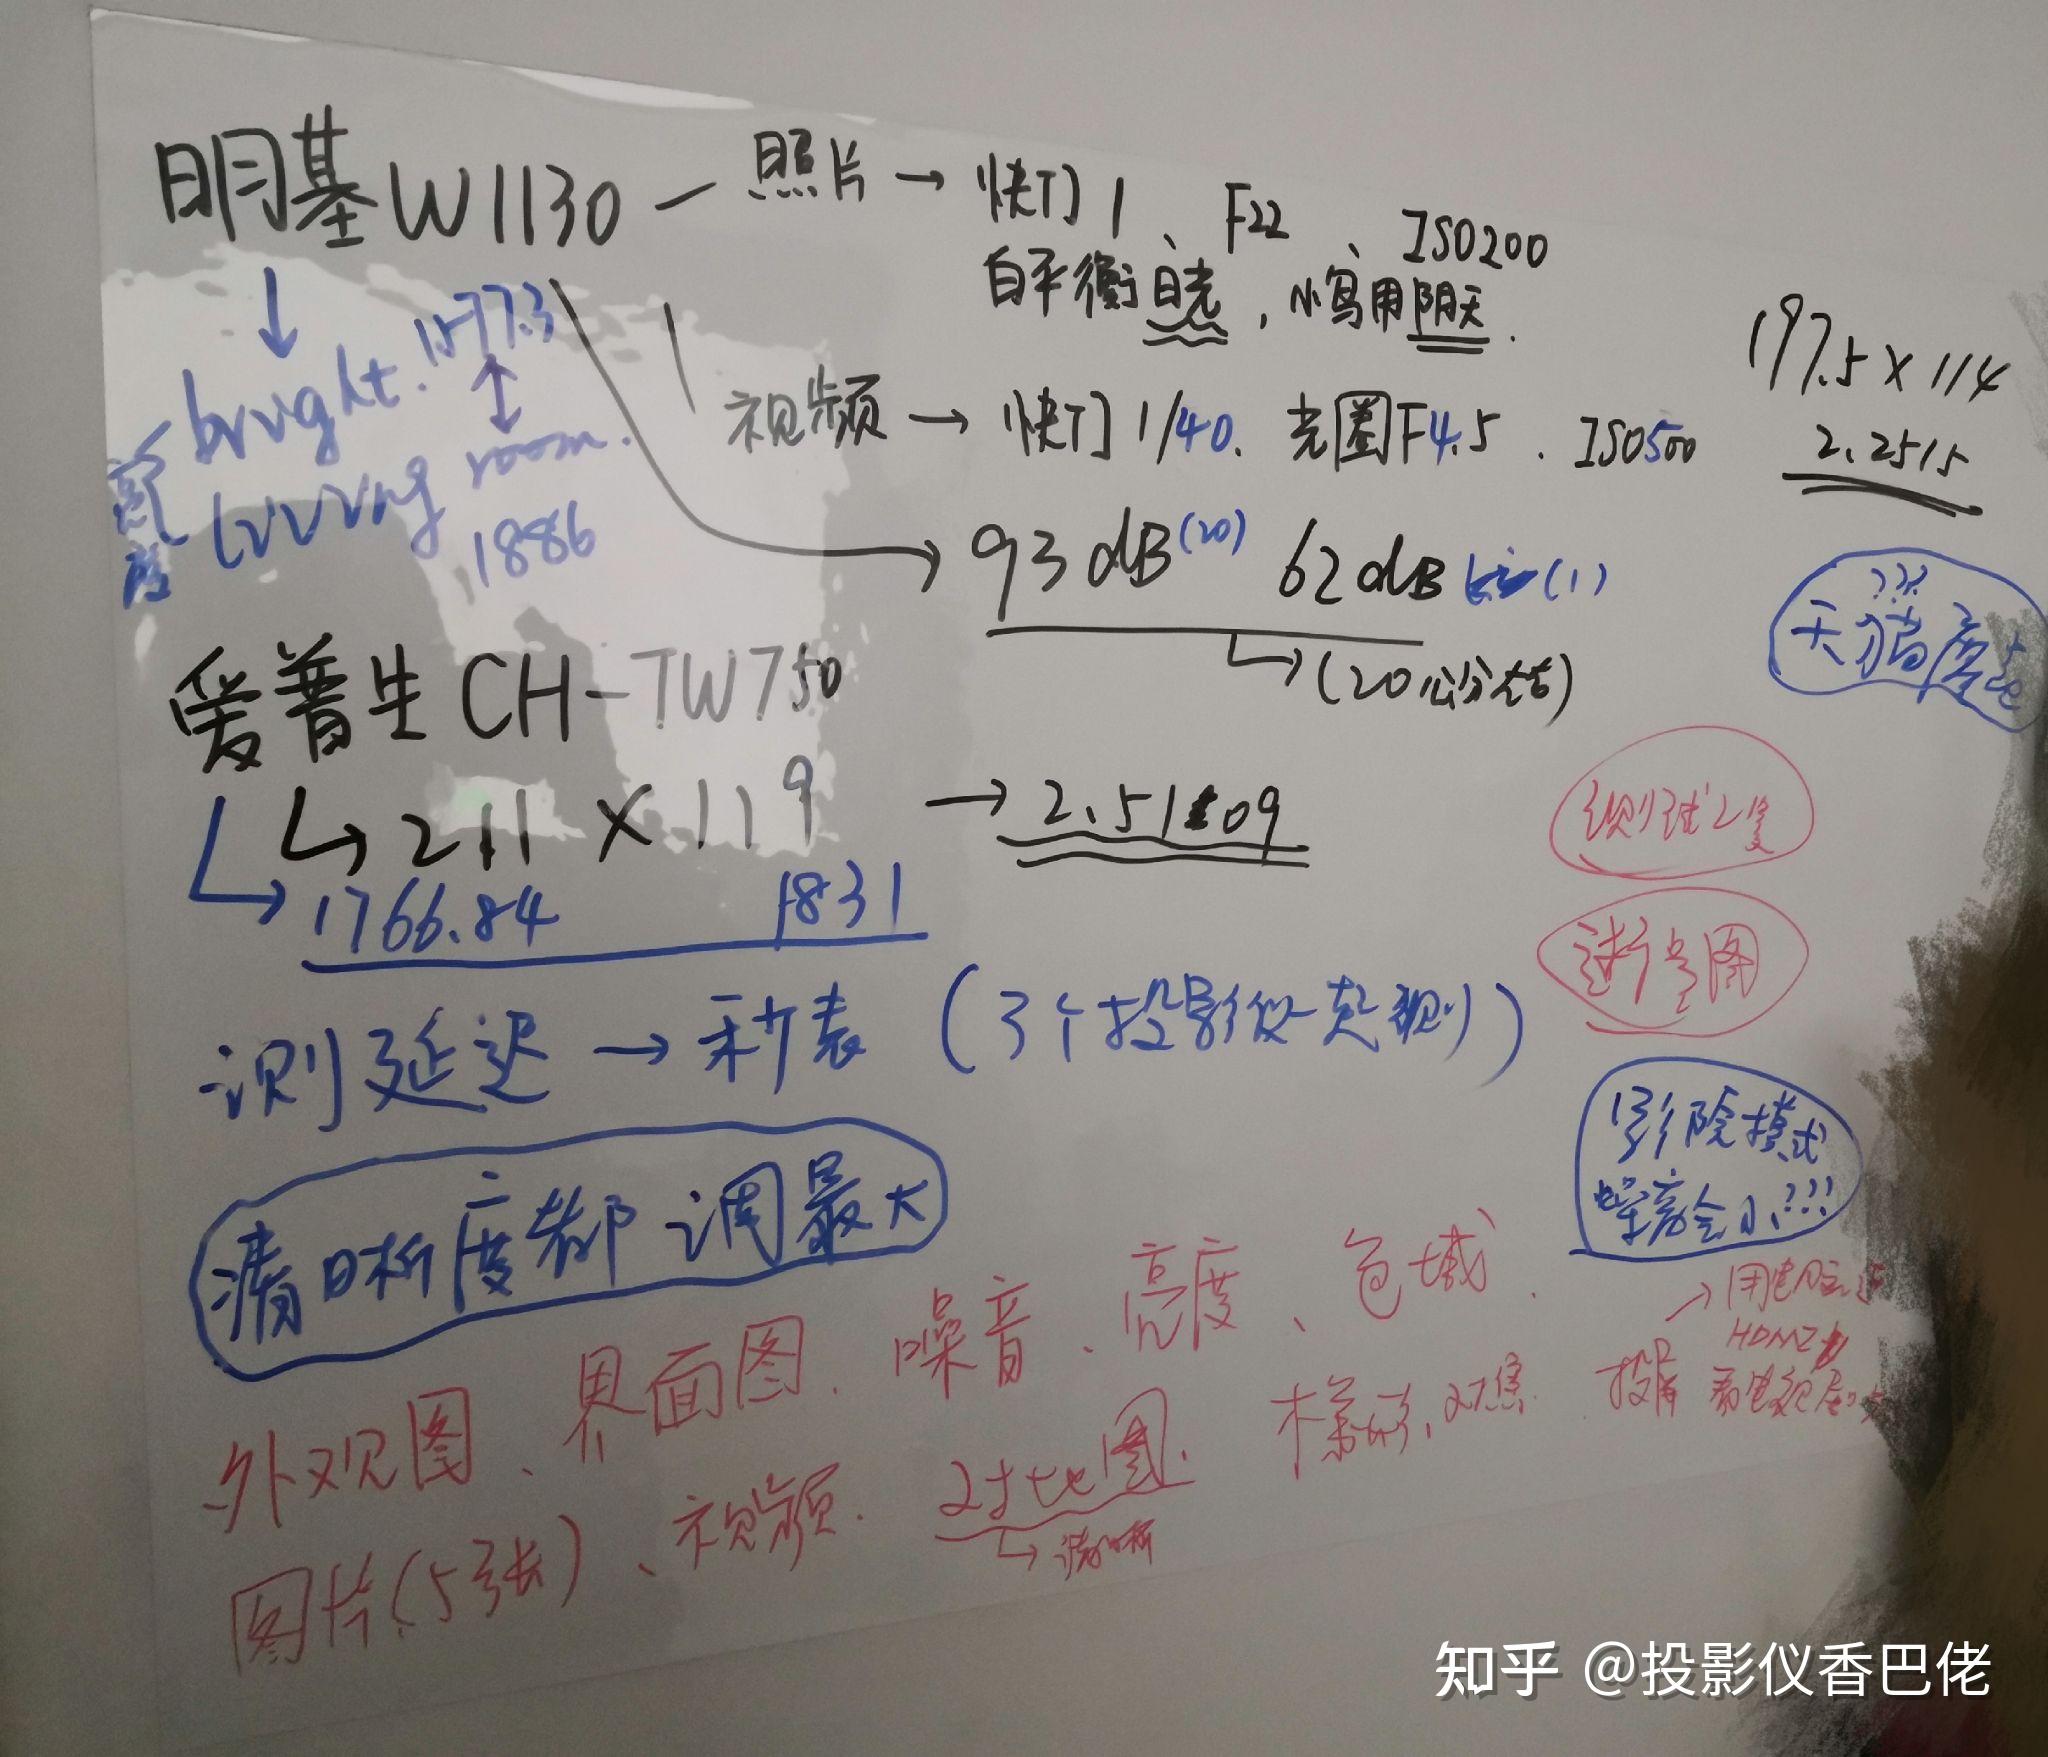 明基W1130 — 照片 → 快门1、F22、ISO200
白平衡日光，小鸟用阴天.
197.5×114
2.2515
bright. 1577.3
living room.
1886
视频 → 快门1/40. 光圈F4.5. ISO500
93dB(20) 62dB (1)
(20公分左右)
???
天猫
爱普生CH-TW750
211×119 → 2.5109
1766.84 1831
测试
图
测延迟 → 秒表（3个投影仪一起测）
影院模式
噪音会小???
清晰度都调最大
外观图、界面图、噪音、亮度、色域.
图片(5张)、视频. 对比图. 梯形,对焦. 投屏
清晰
HDMI
知乎 @投影仪香巴佬